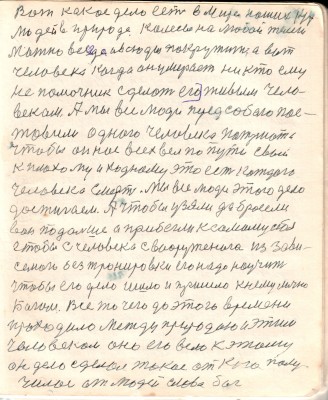 Вот какое дело есть в Мире наших
людей в природе Колесы на любой
Можно везде всюду покрутить, а вот
человека когда он умерает никто ему
не помочник сделать его живым чело-
веком. А мы все люди перед собою пос-
тавили одного человека
чтобы он нас всех вел по пути свой
к плохому и ходному это есть каждого
человека смерть. Мы все люди этого дело
достигаем. А чтобы взяли да бросели
подальше а прибегли к самому себя
чтобы с человека своврутенога из зави-
семого без тронировки его надо научить
чтобы его дело шило и пришло к нему лично
Богом. Все то чего до этого времени
проходило между природою и этим
человеком оно его вело к этому
он дело сделал такое от кого полу-
чилое от людей слова бог